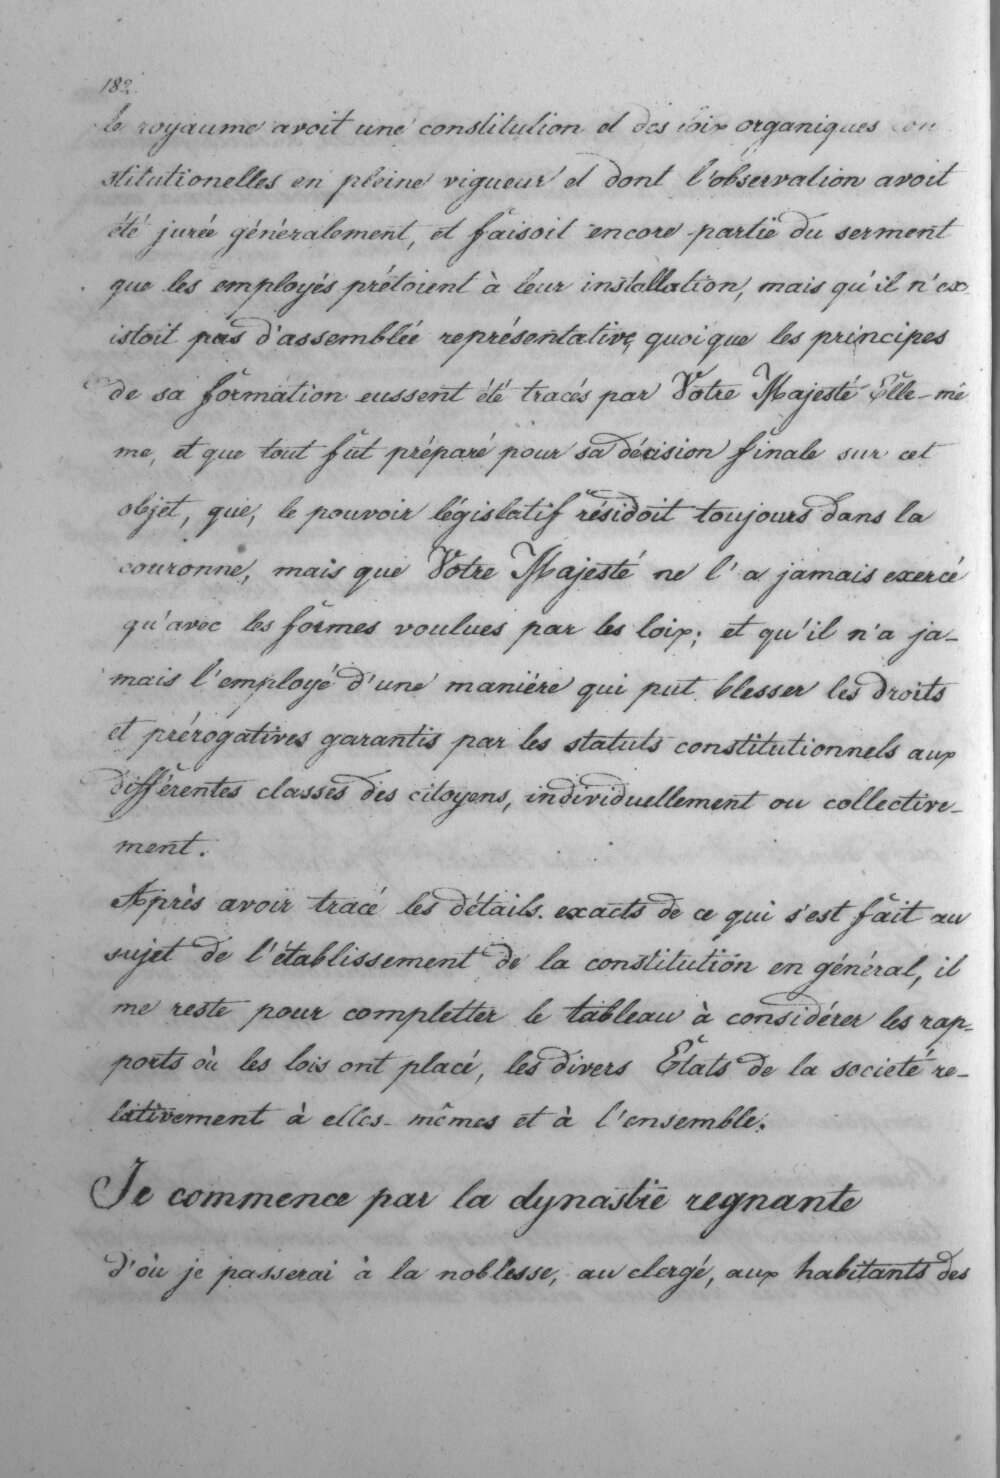 182.
le royaume avoit une constitution et des loix organiques con
stitutionelles en pleine vigueur et dont l'observation avoit
été jurée généralement, et faisoit encore partie du serment
que les employés prétoient à leur installation, mais qu'il n'ex
istoit pas d'assemblée représentative, quoique les principes
de sa formation eussent été tracés par Votre Majesté Elle-mê
me, et que tout fut préparé pour sa décision finale sur cet
objet, que, le pouvoir législatif résidoit toujours dans la
couronne, mais que Votre Majesté ne l'a jamais exercé
qu'avec les formes voulues par les loix; et qu'il n'a ja-
mais l'employé d'une manière qui put blesser les droits
et prérogatives garantis par les statuts constitutionnels aux
différentes classes des citoyens, individuellement ou collective-
ment.
Après avoir tracé les détails exacts de ce qui s'est fait au
sujet de l'établissement de la constitution en général, il
me reste pour completter le tableau à considérer les rap-
ports où les lois ont placé, les divers États de la societé re-
lativement à elles-mêmes et à l'ensemble.
Je commence par la dynastie regnante
d'où je passerai à la noblesse, au clergé, aux habitants des